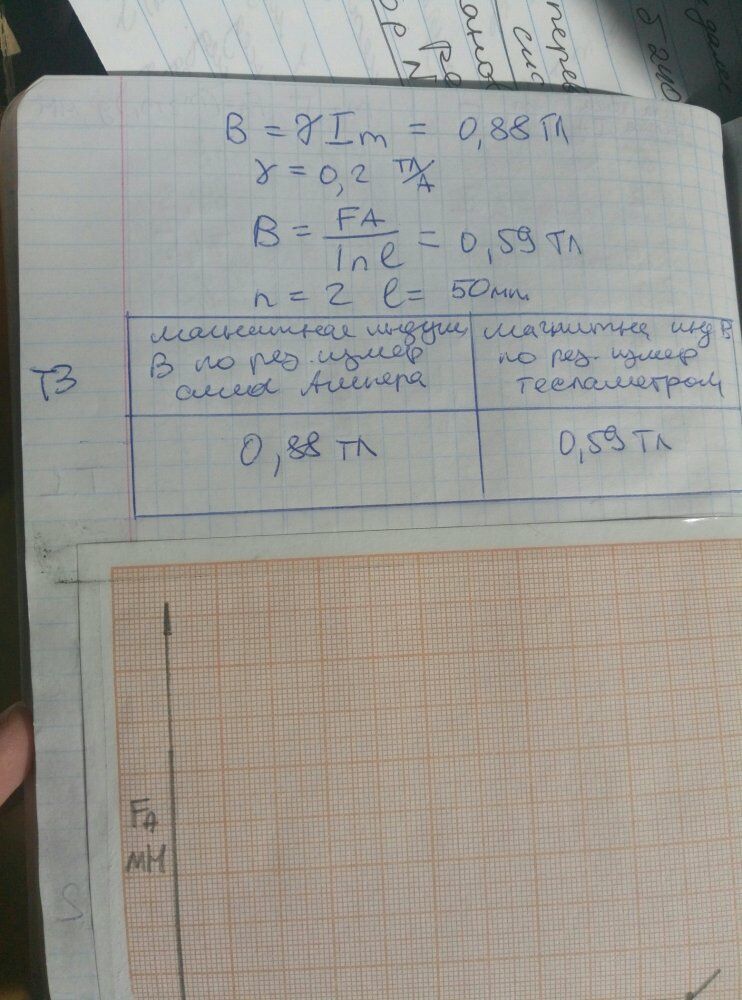 перев
сис
B = γ Im = 0,88 Тл
γ = 0,2 Тл/А
B = FA / Inl = 0,59 Тл
n = 2 l = 50мм
Т3
магнитная индукц
B по рез. измер
силы Ампера
магнитна инд B
по рез. измер
тесламетром
0,88 Тл
0,59 Тл
FA
мН